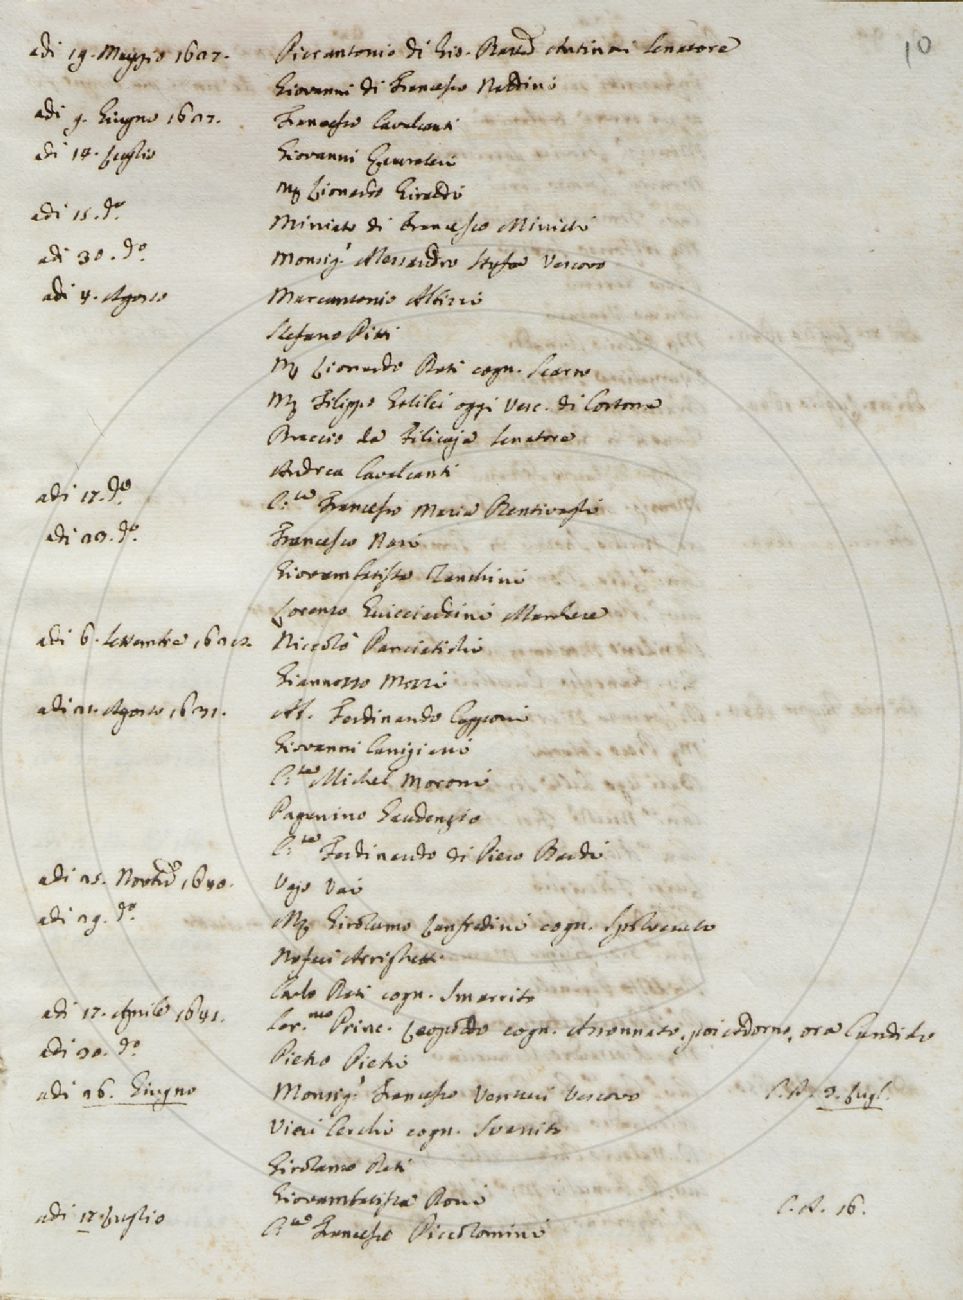 10
adi 19. Maggio 1627. Pierantonio di Gio. Batt.a Antinori Senatore
Giovanni di Francesco Naldini
adi 9. Giugno 1627. Francesco Cavalcanti
adi 14. Luglio Giovanni
Mr. Lionardo Giraldi
adi 15. do. Miniato di Francesco Miniati
adi 30. do. Monsigr. Alessandro Vescovo
adi 4. Agosto Marcantonio Albizi
Stefano Pitti
Mr. Lionardo Dati cogn. Scarso
Mr. Filippo Galilei oggi Vesc. di Cortona
Braccio da Filicaja Senatore
Andrea Cavalcanti
adi 17. do. C.te Francesco Maria Bentivogli
adi 23. do. Francesco Nasi
Giovambatista Zanchini
Lorenzo Guicciardini Marchese
adi 6. Settembre Niccolò Panciatichi
Giannozzo
adi 21. Agosto 1631. Ab. Ferdinando Capponi
Giovanni Canigiani
Michel Moroni
Paganino Gaudenzio
C.te Ferdinando di Piero Bardi
adi 25. 1640. Vajo Vai
adi 29. do. Mr. Girolamo Lanfredini cogn. Spolverato
Carlo Dati cogn. Smarrito
adi 17. Aprile 1641. Ser.mo Princ. Leopoldo cogn. Assonnato, poi Adorno, ora Candido
adi 30. do. Pietro Pieti
adi 26. Giugno Monsigr. Francesco Venturi Vescovo C. A. 3. Lugl.
Vieri Cerchi cogn. Svanito
Girolamo Dati
Giovambatista Doni C. A. 16.
adi 17. Luglio Francesco Piccolomini